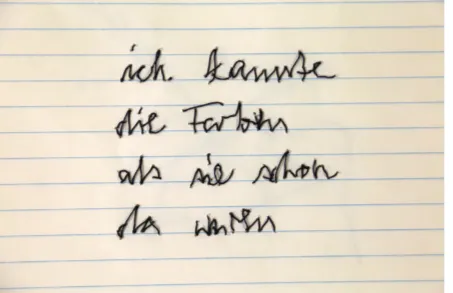 ich kannte
die Farben
als sie schon
da waren